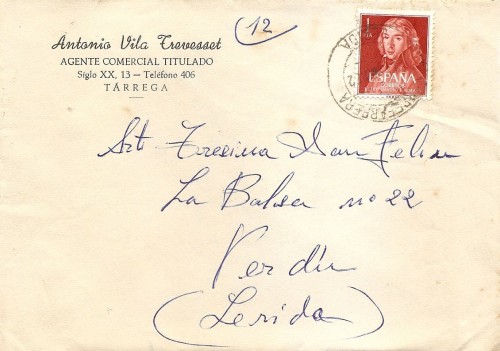 12
Antonio Vila Trevesset
AGENTE COMERCIAL TITULADO
Siglo XX, 13 - Teléfono 406
TÁRREGA
1
ESPAÑA
CORREOS
TARREGA
Srt Teresina San Feliu
La Balsa nº 22
Verdú
(Lerida)